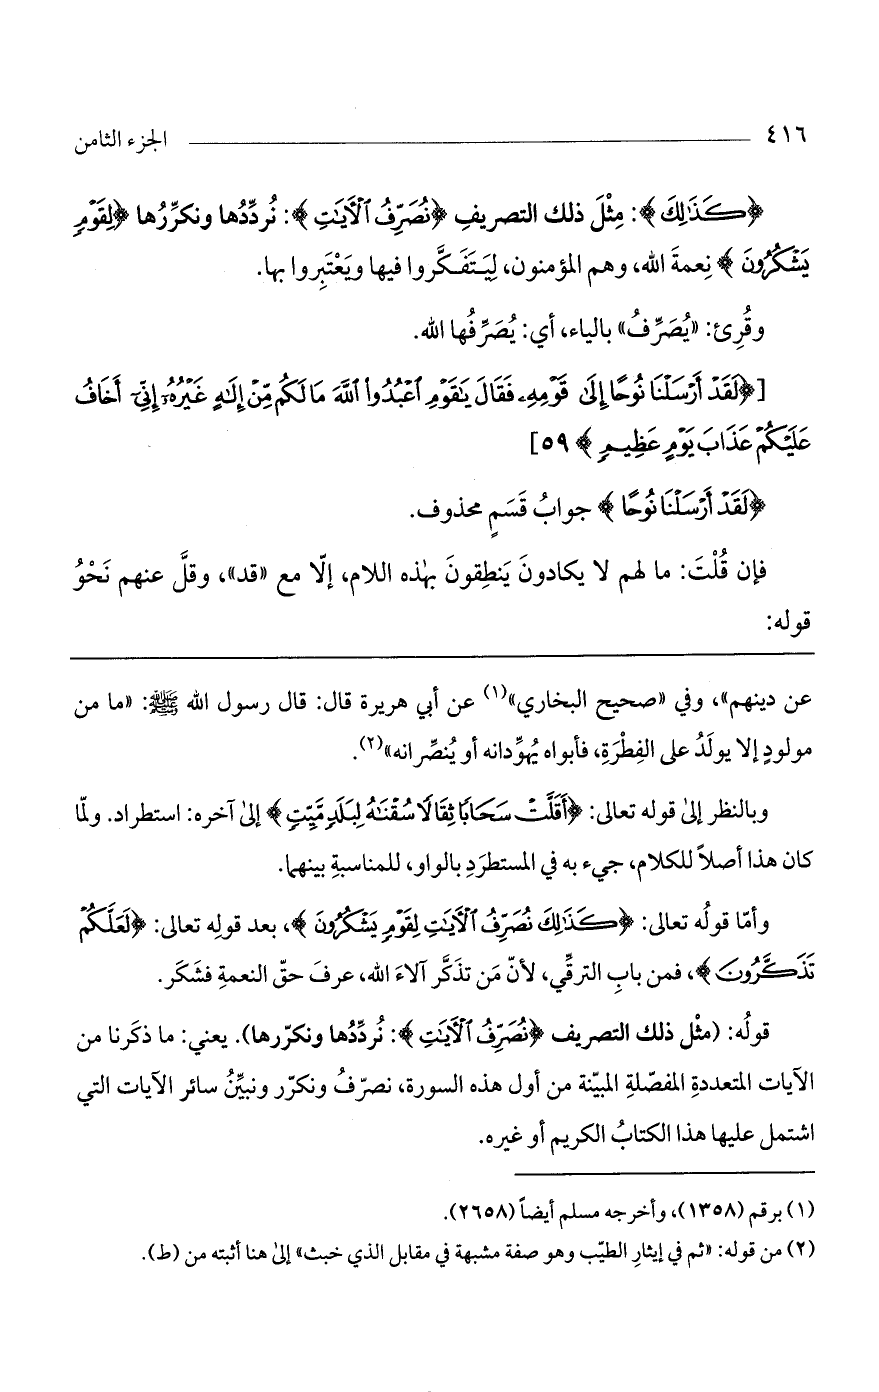 ٤١٦ الجزء الثامن
﴿كَذَٰلِكَ﴾: مِثْلَ ذلك التصريفِ ﴿نُصَرِّفُ ٱلْأَيَٰتِ﴾: نُردِّدُها ونكرِّرُها ﴿لِقَوْمٍ
يَشْكُرُونَ﴾ نِعمةَ الله، وهم المؤمنون، لِيَتَفَكَّروا فيها ويَعْتَبِروا بها.
وقُرِئ: «يُصَرِّفُ» بالياء، أي: يُصَرِّفُها الله.
[﴿لَقَدْ أَرْسَلْنَا نُوحًا إِلَىٰ قَوْمِهِۦ فَقَالَ يَٰقَوْمِ ٱعْبُدُوا۟ ٱللَّهَ مَا لَكُم مِّنْ إِلَٰهٍ غَيْرُهُۥٓ إِنِّىٓ أَخَافُ
عَلَيْكُمْ عَذَابَ يَوْمٍ عَظِيمٍ﴾ ٥٩]
﴿لَقَدْ أَرْسَلْنَا نُوحًا﴾ جوابُ قَسَمٍ محذوف.
فإن قُلْتَ: ما لهم لا يكادونَ يَنطِقونَ بهٰذه اللام، إلّا مع «قد»، وقلَّ عنهم نَحْوُ
قوله:
عن دينهم»، وفي «صحيح البخاري»(١) عن أبي هريرة قال: قال رسول الله ﷺ: «ما من
مولودٍ إلا يولَدُ على الفِطْرَةِ، فأبواه يُهوِّدانه أو يُنصِّرانه»(٢).
وبالنظر إلىٰ قوله تعالى: ﴿أَقَلَّتْ سَحَابًا ثِقَالًا سُقْنَٰهُ لِبَلَدٍ مَّيِّتٍ﴾ إلىٰ آخره: استطراد. ولمّا
كان هذا أصلاً للكلام، جيء به في المستطرَدِ بالواو، للمناسبةِ بينهما.
وأمّا قولُه تعالى: ﴿كَذَٰلِكَ نُصَرِّفُ ٱلْأَيَٰتِ لِقَوْمٍ يَشْكُرُونَ﴾، بعد قولِه تعالى: ﴿لَعَلَّكُمْ
تَذَكَّرُونَ﴾، فمن بابِ الترقِّي، لأنّ مَن تذكَّر آلاءَ الله، عرفَ حقّ النعمةِ فشَكَر.
قولُه: (مثْل ذلك التصريف ﴿نُصَرِّفُ ٱلْأَيَٰتِ﴾: نُردِّدُها ونكرّرها). يعني: ما ذكَرنا من
الآيات المتعددةِ المفصّلةِ المبيّنة من أول هذه السورة، نصرّفُ ونكرّر ونبيِّنُ سائر الآيات التي
اشتمل عليها هذا الكتابُ الكريم أو غيره.
(١) برقم (١٣٥٨)، وأخرجه مسلم أيضاً (٢٦٥٨).
(٢) من قوله: «ثم في إيثارِ الطيّب وهو صفة مشبهة في مقابل الذي خبث» إلىٰ هنا أثبته من (ط).